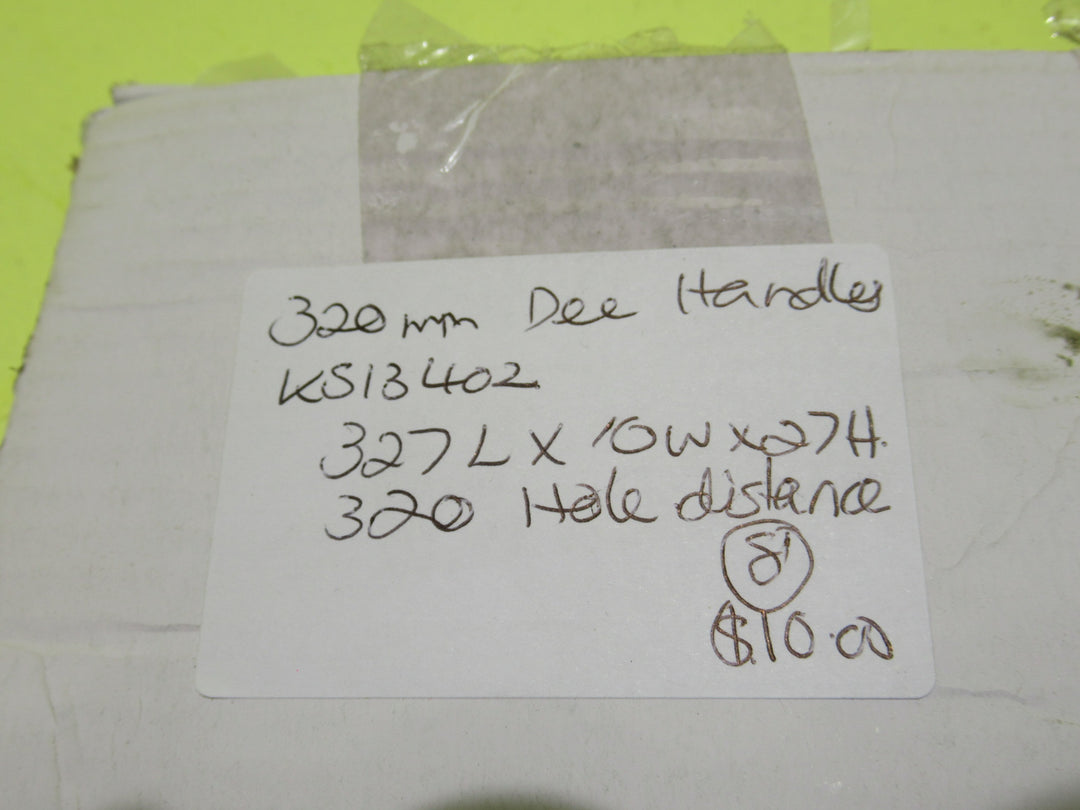 320mm Dee Handles
KS13402
327L X 10W X 27H.
320 Hole distance
8
$10.00